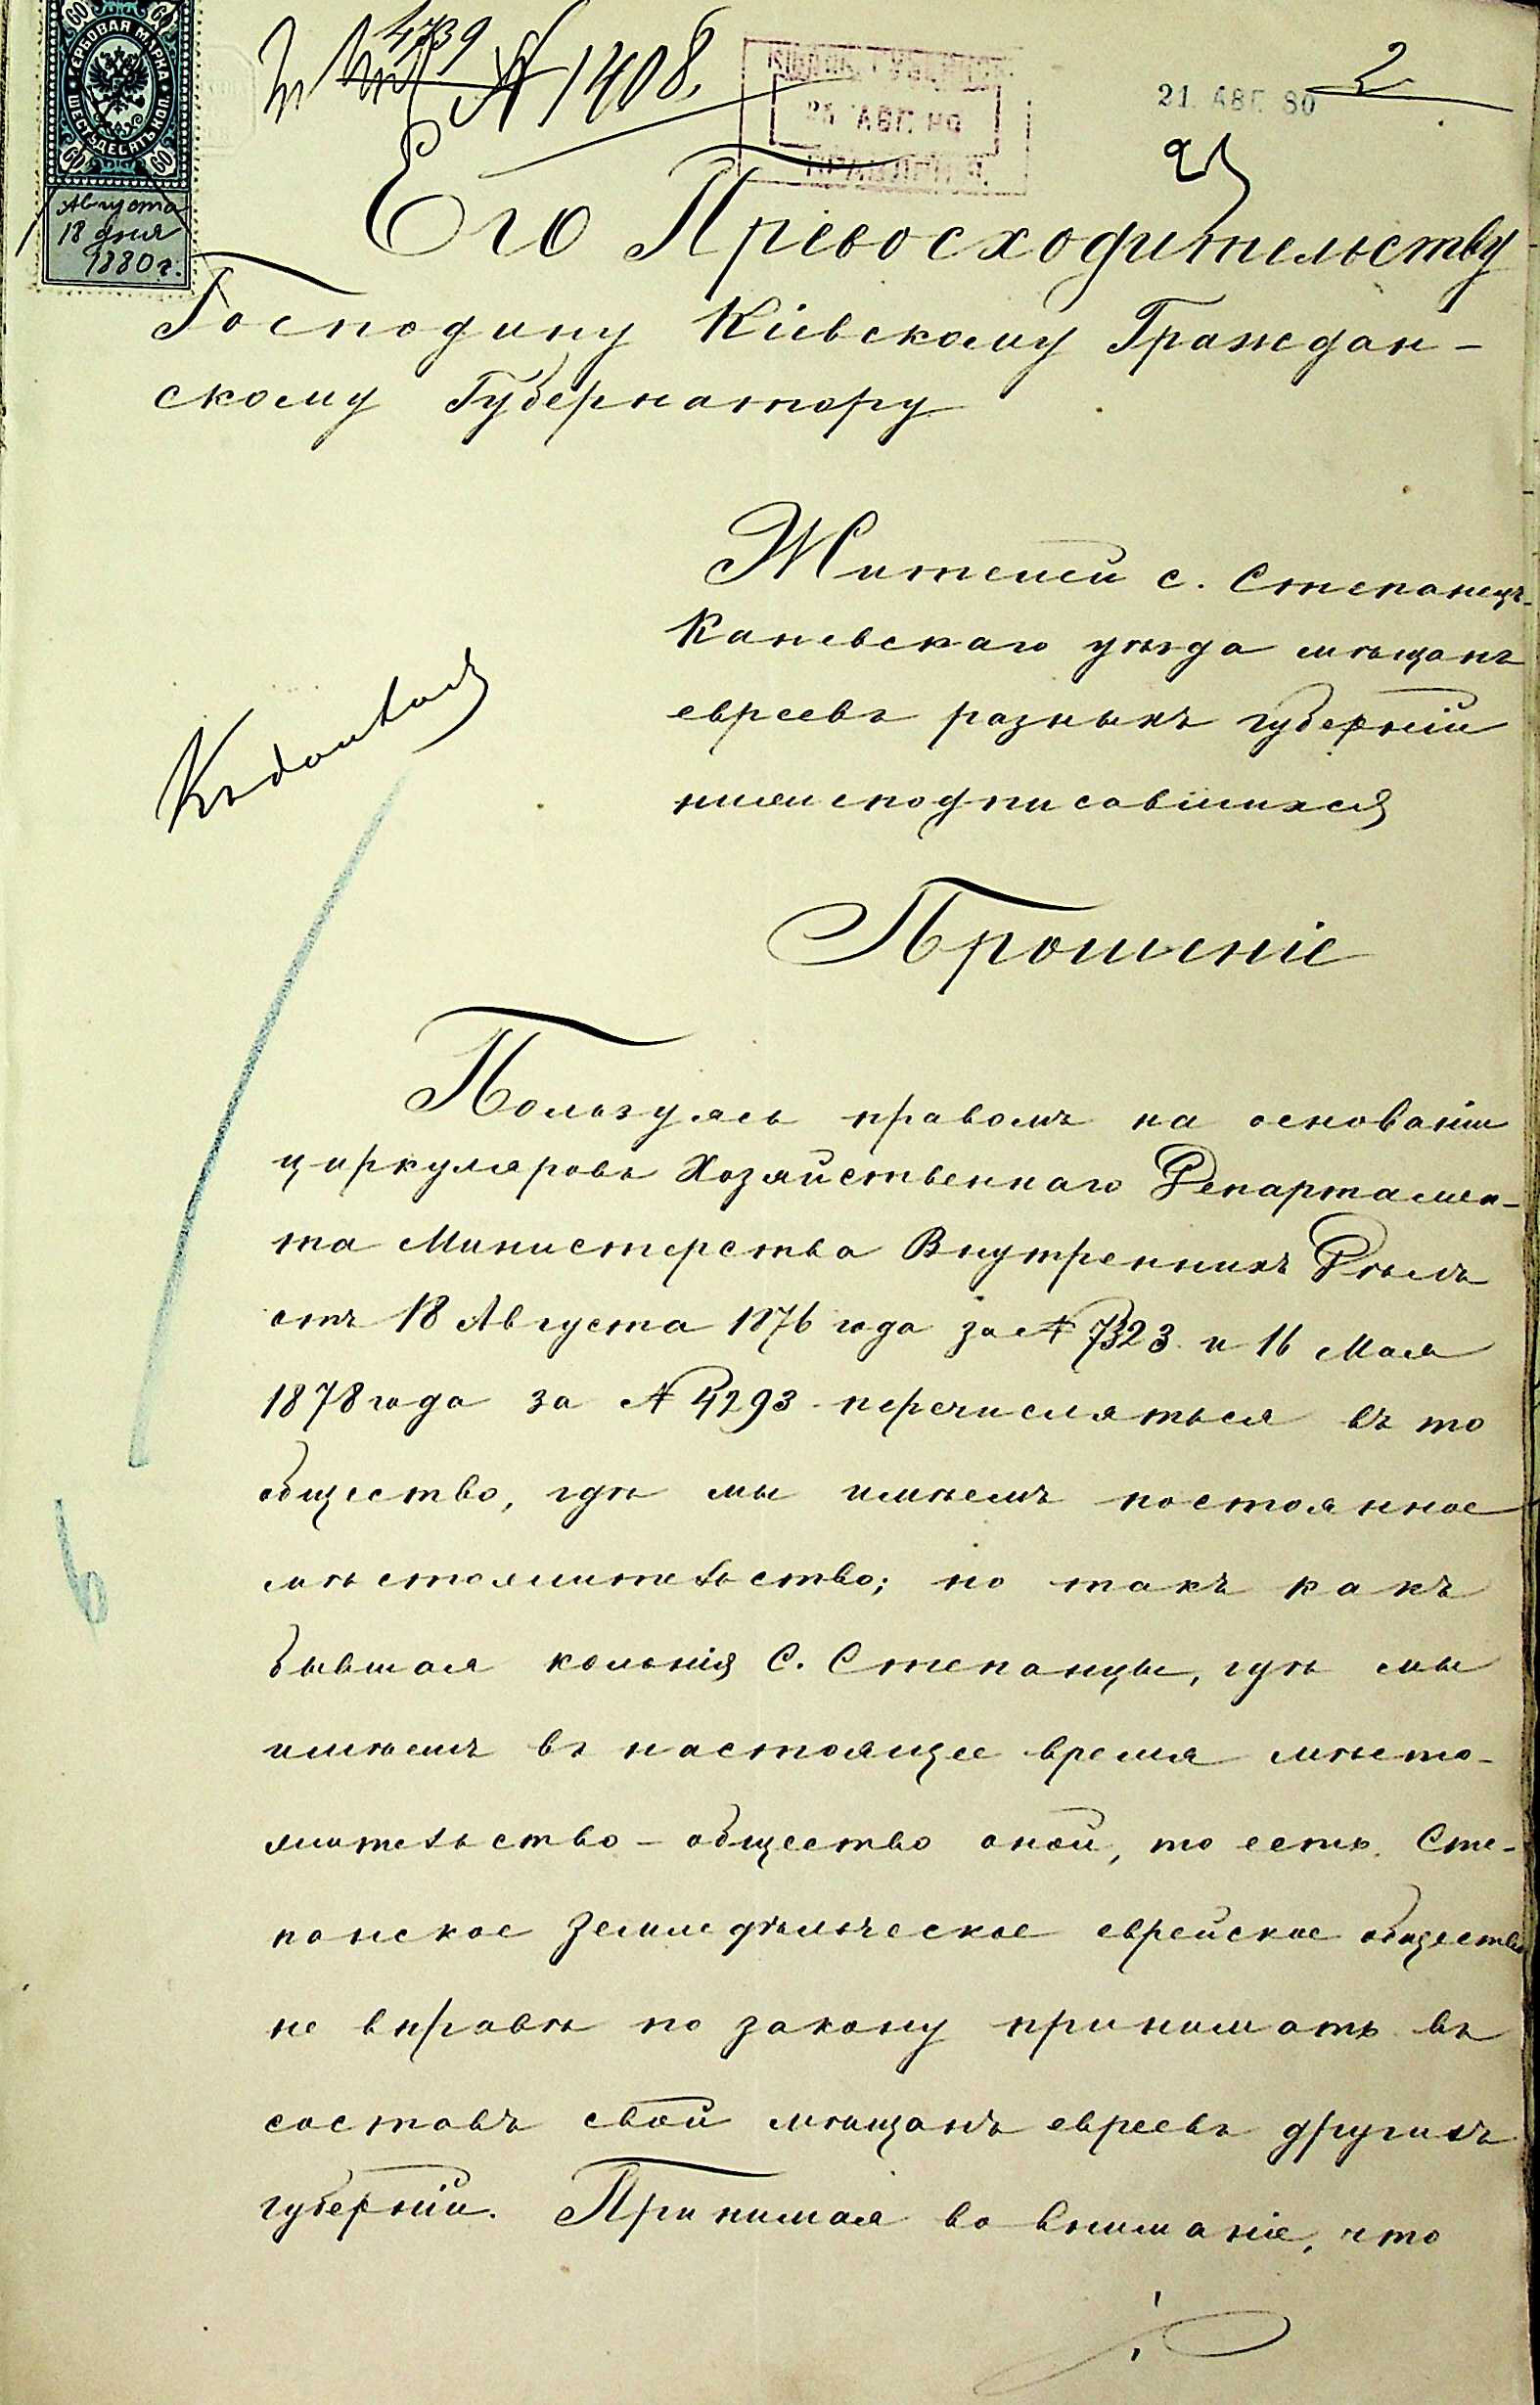 60 60
ГЕРБОВАЯ МАРКА
ШЕСТЬДЕСЯТЬ КОП.
60 60
Августа
18 дня
1880 г.
4739
№ 1408.
25 АВГ. 80
ПРАВЛЕНІЯ
21. АВГ. 80
2
Его Превосходительству
Господину Кіевскому Граждан-
скому Губернатору
Жителей с. Степанецъ
Каневскаго уѣзда мѣщанъ
евреевъ разныхъ губерній
нижеподписавшихся
Прошеніе
Пользуясь правомъ на основаніи
циркуляровъ Хозяйственнаго Департамен-
та Министерства Внутреннихъ Дѣлъ
отъ 18 Августа 1876 года за № 7323 и 16 Мая
1878 года за № 4293 перечисляться въ то
общество, гдѣ мы имѣемъ постоянное
мѣстожительство; но такъ какъ
бывшая колонія С. Степанцы, гдѣ мы
имѣемъ въ настоящее время мѣсто-
жительство - общество оной, то есть Сте-
панское Земледѣльческое еврейское общество
не вправѣ по закону принимать въ
составъ свой мѣщанъ евреевъ другихъ
губерній. Принимая во вниманіе, что